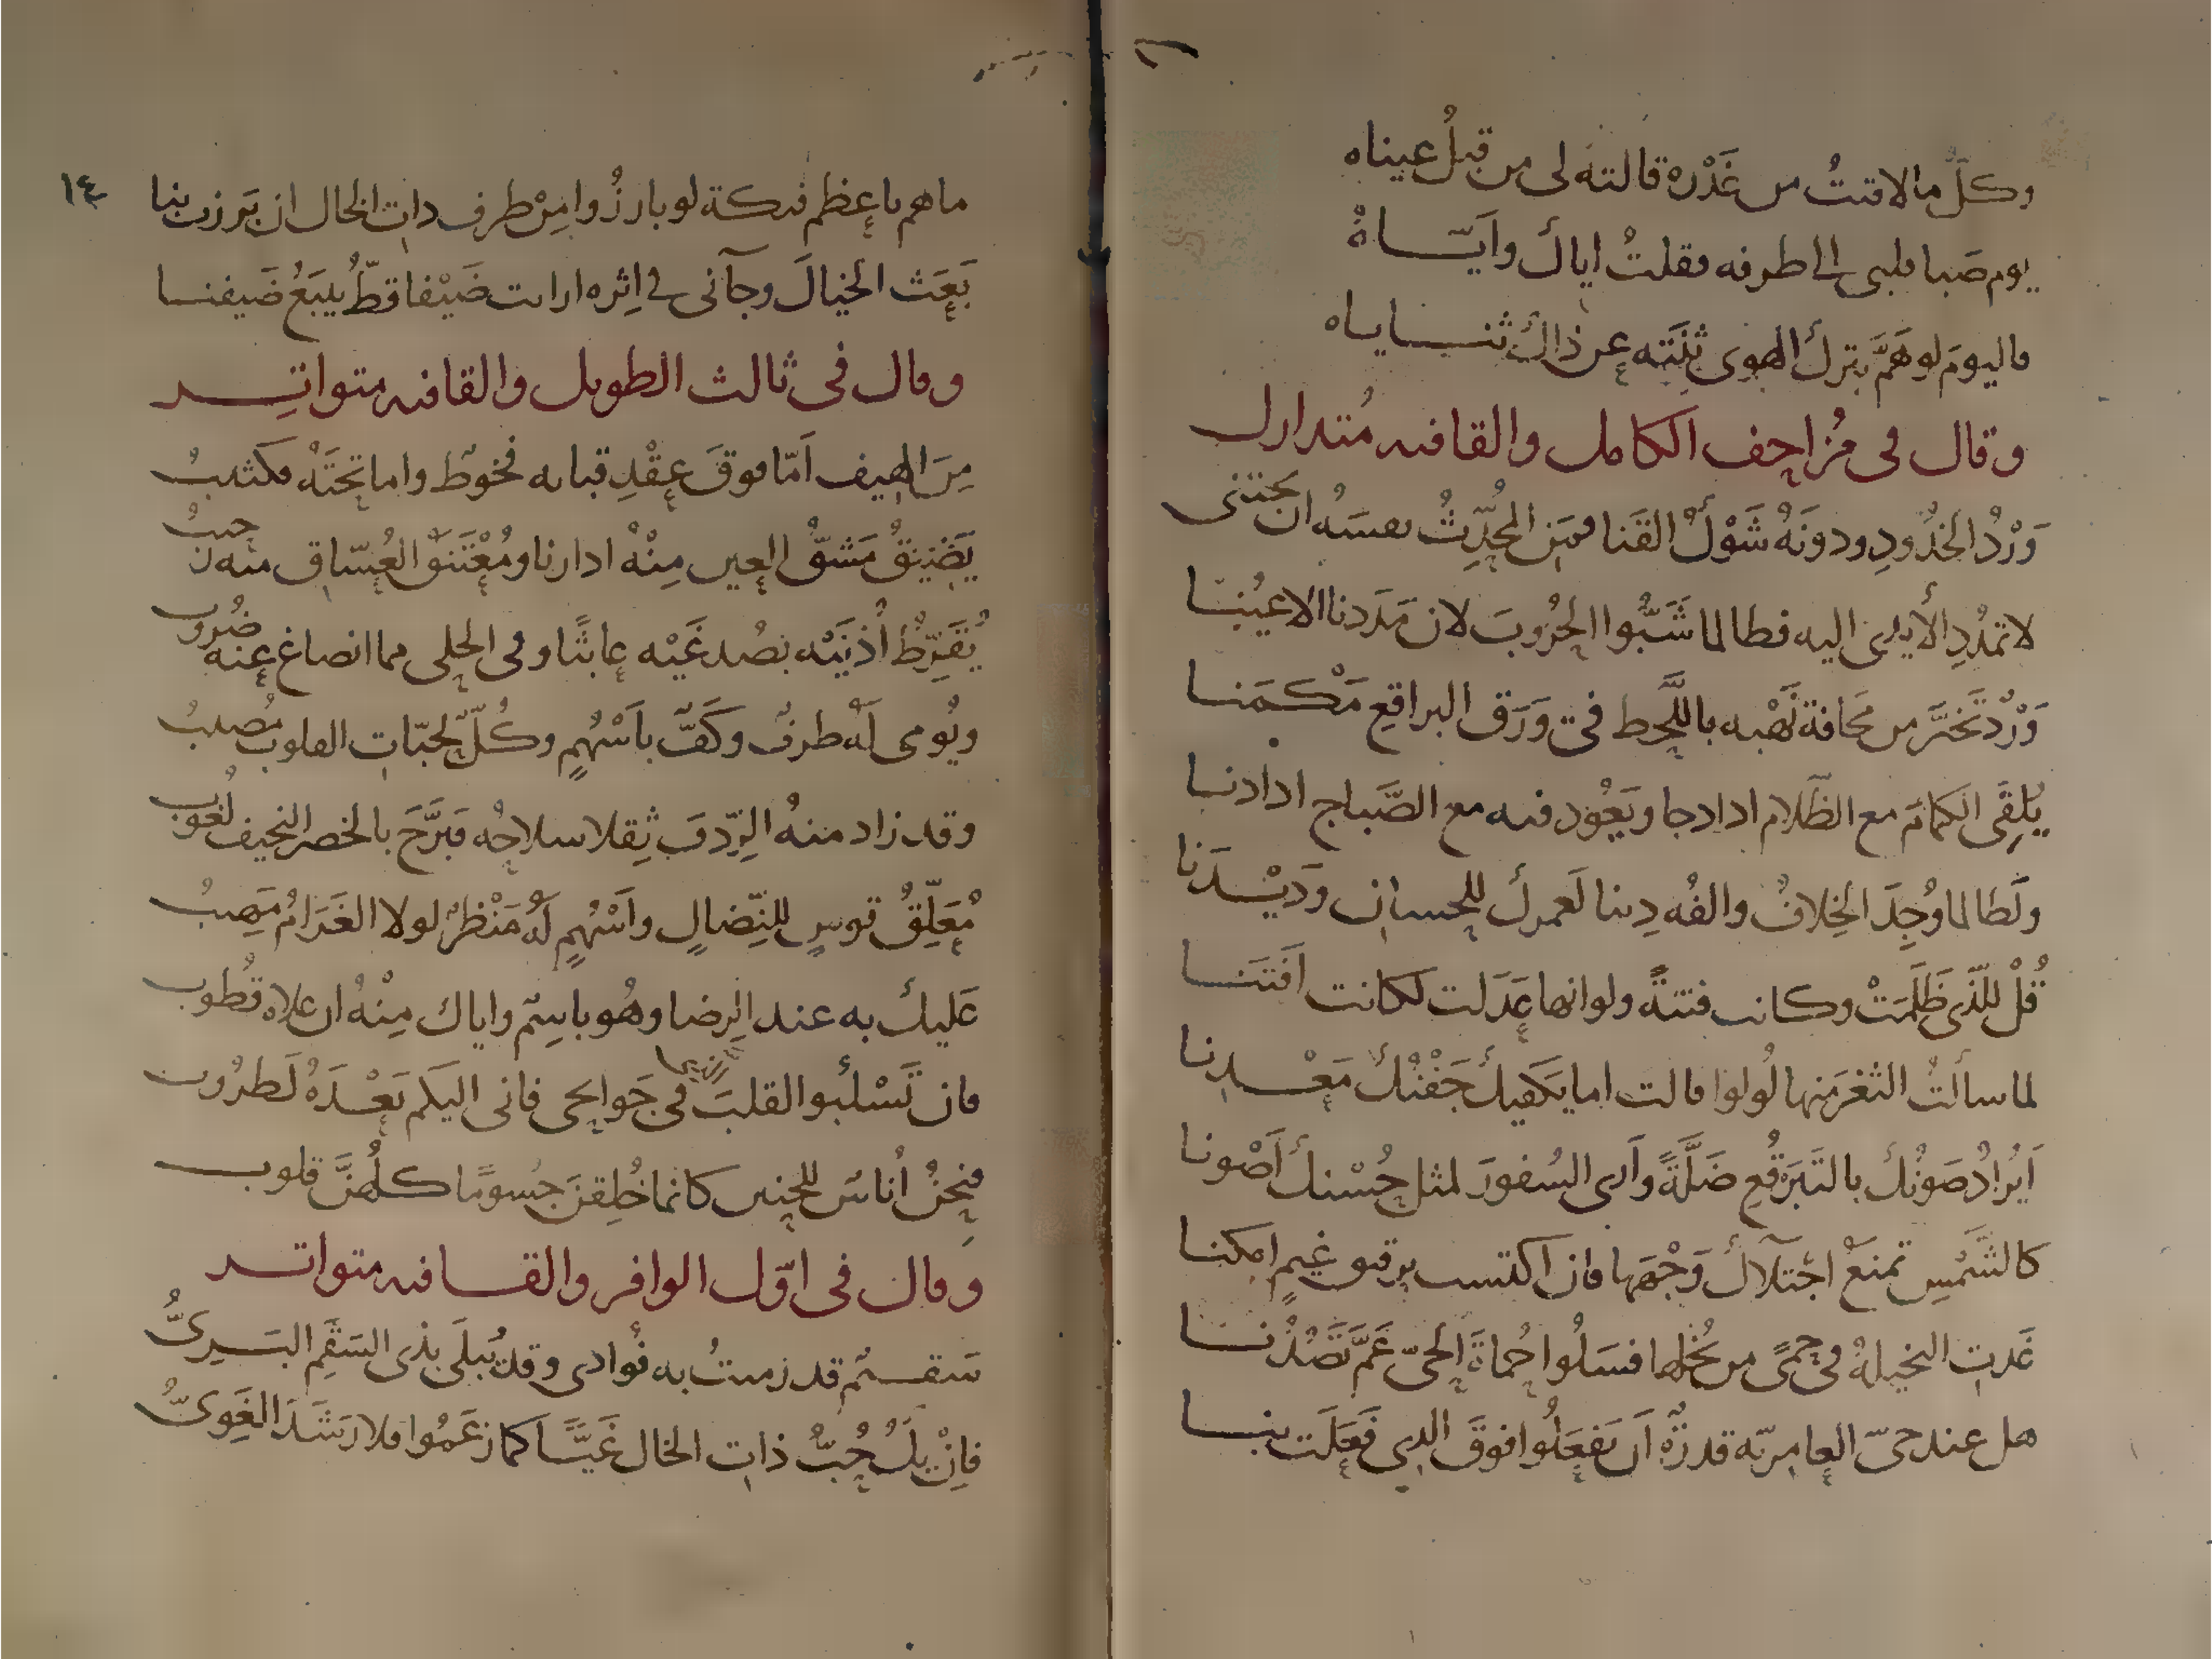 وكلّ ما لاقيتُ من غَدْره قالته لى من قبلُ عيناه
يوم صَبا قلبى الى طرفه فقلتُ اياك وايّاهُ
فاليومَ لو هَمَّ بترك الهوى ثَنَتَه عن ذاك ثناياه
وقال فى مُزاحف الكامل والقافيه مُتدارك
وَرْدُ الخدُودِ ودونَهُ شَوْكُ القَنا فمَن المحُدّثُ نفسَهُ ان يجتنى
لا تمدُدِ الأيدى اليه فطالما شَبُّوا الحُرُوبَ لان مَدَدنا الاعيُنا
وَرْدٌ تخيَّر من مخافة نَهْبه باللَّحظ فى وَرَق البراقعِ مَكْمَنا
يُلقِى الكمامَ مع الظَلام اذا دجا ويَعُود فيه مع الصَّباح اذا دنا
ولَطالما وُجِدَ الخِلافُ والفُه دِينا لَعمرك للحسان ودَيْدَنا
قُلْ للّذى ظَلَمَتْ وكانت فتنةً ولو انها عَدَلت لكانت افَتنا
لما سألتُ الثغرَ منها لُولوا قالت اما يكفيك جَفْنُك مَعْدنا
اَيُرادُ صَونُك بالتَبَرقُعِ ضَلَّةً وأرى السُفورَ لمثل حُسْنك أصْونا
كالشَمْسِ تمنَعْ اجتلآك وَجْهَها فان اكتست برقيق غيمٍ امكنا
غَدتِ البخيلةُ فى حِمىً من بُخلها فسَلُوا حُماةَ الحىّ عَمَّ تَصُدُّنا
هل عند حىّ العامريّه قدرَةٌ أن يَفعَلُوا فوقَ الذى فَعَلَت بنا
١٤
ما هم باعظم فتكة لو بارزُوا مِنْ طرف ذات الخال ان بَرزت بنا
بَعَث الخيالَ وجآنى فى اِثره ارايت ضَيْفا قطُّ يتبَعُ ضَيفنا
وقال فى ثالث الطويل والقافيه متواتر
مِنَ الهيف اَمّا فوقَ عِقْدِ قبايه فخوطٌ واما تحتَهُ فكثيبُ
يَضيقُ مَشقُّ العين مِنْهُ اذا رنا ومُعْتَنقُ العُشّاق منه رحيبُ
يُقَرّطُ أُذنَيْه بصُدغَيْه عابثًا وفى الحلى مما انصاغ عنه ضُروب
ويُومى لَه طرفٌ وكَفٌّ باَسْهُمٍ وكُلٌّ لحبّات القلوب مُصيبُ
وقد زاد منهُ الرِّدفَ ثِقلا سلاحُه فبَرَّحَ بالخصر النحيف لُغُوب
مُعَلّقُ قوسٍ للنِّضالِ واَسْهُمٍ لَهُ مَنْظرٌ لولا الغَرَامُ مَهيبُ
عَليك به عند الرِضا وهُو باسِمٌ واياك مِنْهُ ان علاه قُطوب
فان تَسْلُبُوا القلبَ فى جَوانحى فانى اليكم بَعْدَهُ لَطرُوب
فنحنُ أُناسٌ للحنين كانما خُلِقنَ جُسومًا كلُّهنَّ قلوب
وقال فى اوّل الوافر والقافيه متواتر
سَقيمٌ قد رَميتُ به فُوادى وقد يُبلَى بذى السَقَمِ البَرىُّ
فاِنْ يكُ حُبُّ ذات الخال غَيًّا كما زعَمُوا فلا رَشَدَ الغَوِىُّ